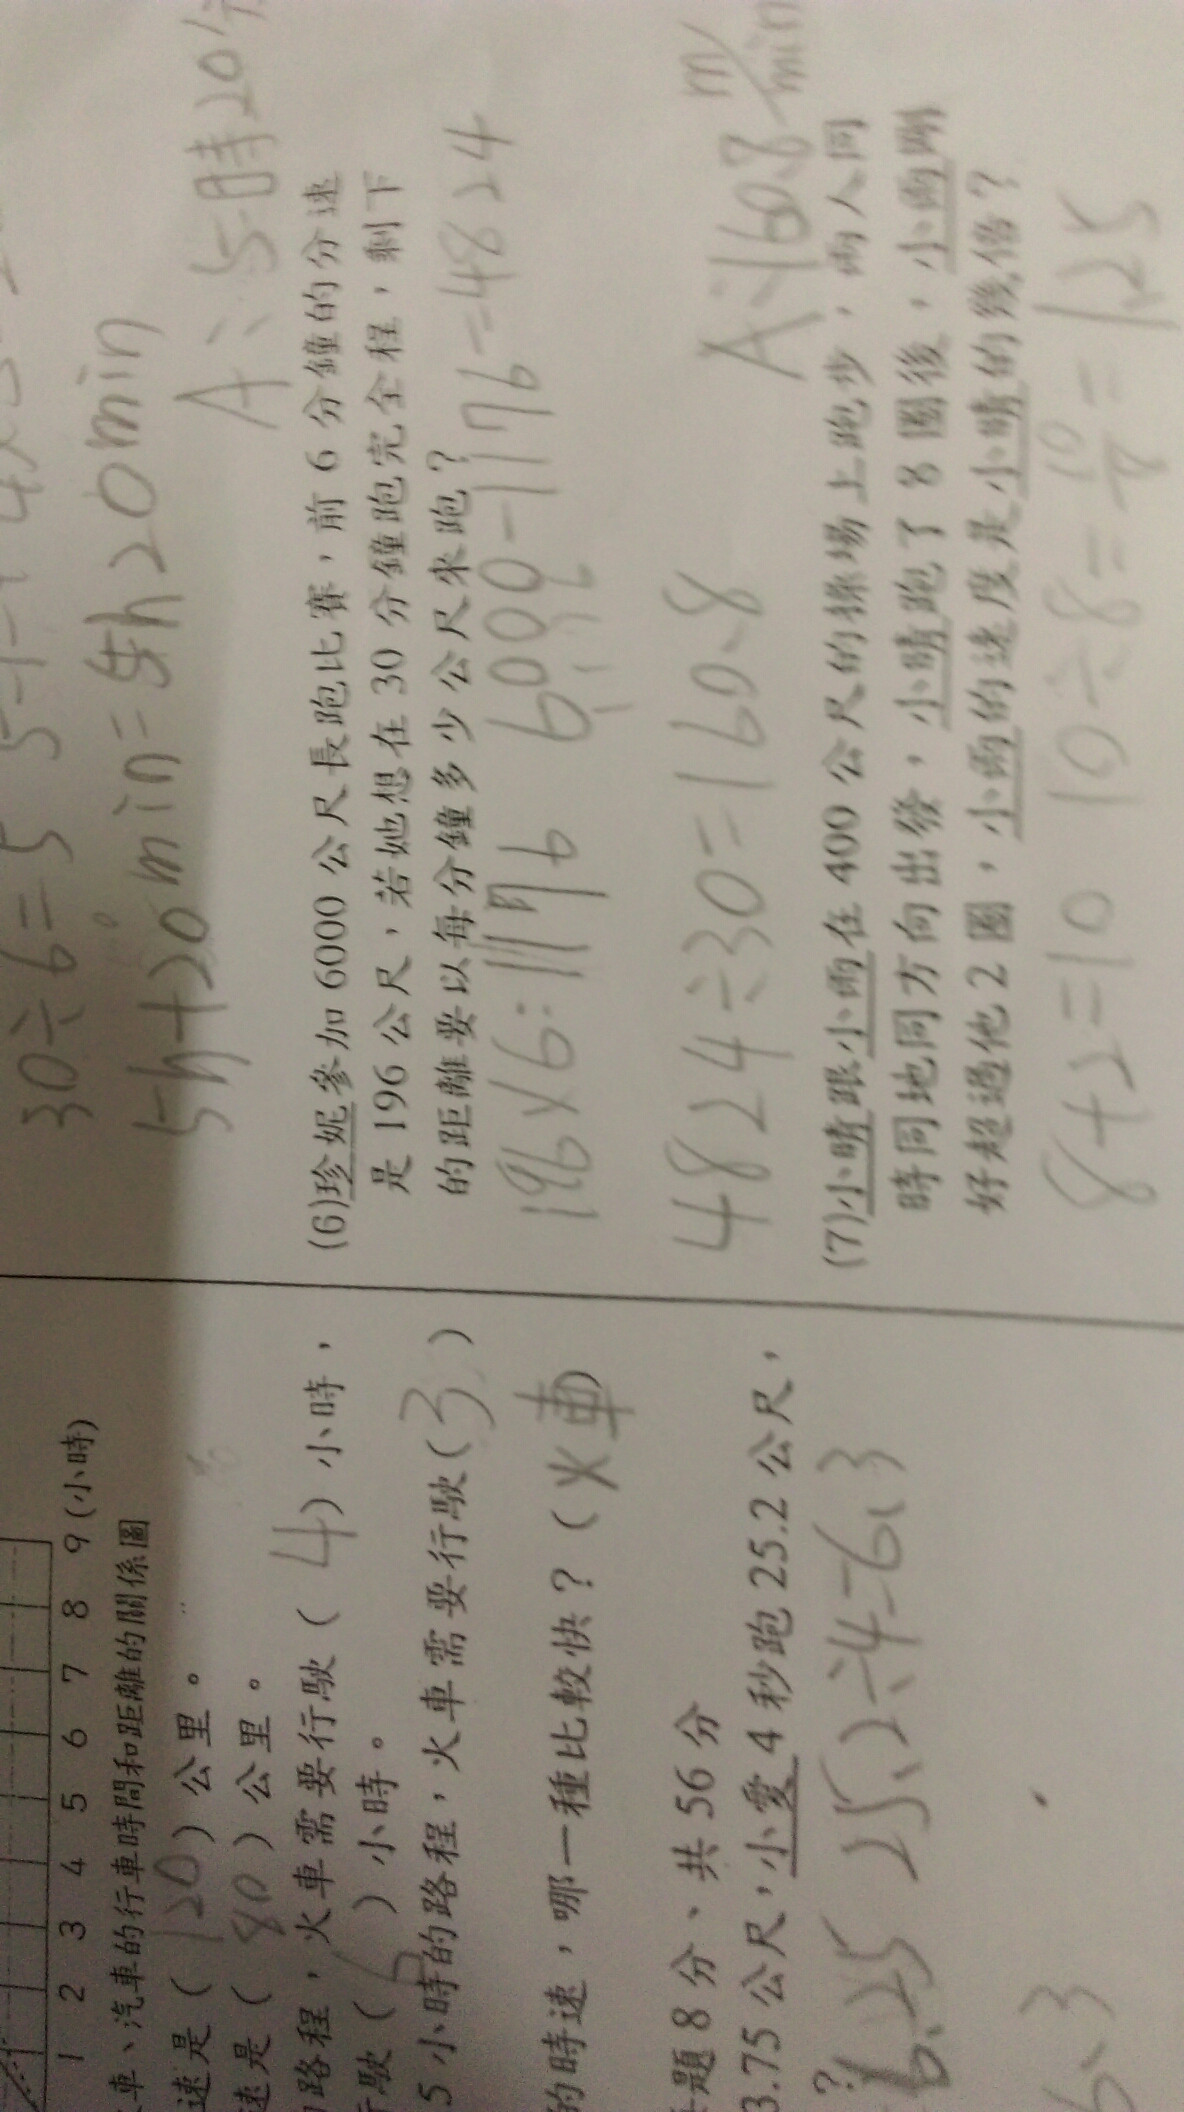 1 2 3 4 5 6 7 8 9 (小時)
車、汽車的行車時間和距離的關係圖
速是(120)公里。
速是(80)公里。
路程，火車需要行駛(4)小時，
行駛(6)小時。
5小時的路程，火車需要行駛(3)
的時速，哪一種比較快？(火車)
題8分、共56分
3.75公尺，小愛4秒跑25.2公尺，
?
6.25 25.2÷4=6.3
6.3
30÷6=5
5h+20min=5h20min
A:5時20分
(6)珍妮參加6000公尺長跑比賽，前6分鐘的分速
是196公尺，若她想在30分鐘跑完全程，剩下
的距離要以每分鐘多少公尺來跑？
196×6=1176 6000-1176=4824
4824÷30=160.8
A:160.8 m/min
(7)小晴跟小雨在400公尺的操場上跑步，兩人同
時同地同方向出發，小晴跑了8圈後，小雨剛
好超過他2圈，小雨的速度是小晴的幾倍？
8+2=10 10÷8=10/8=1.25